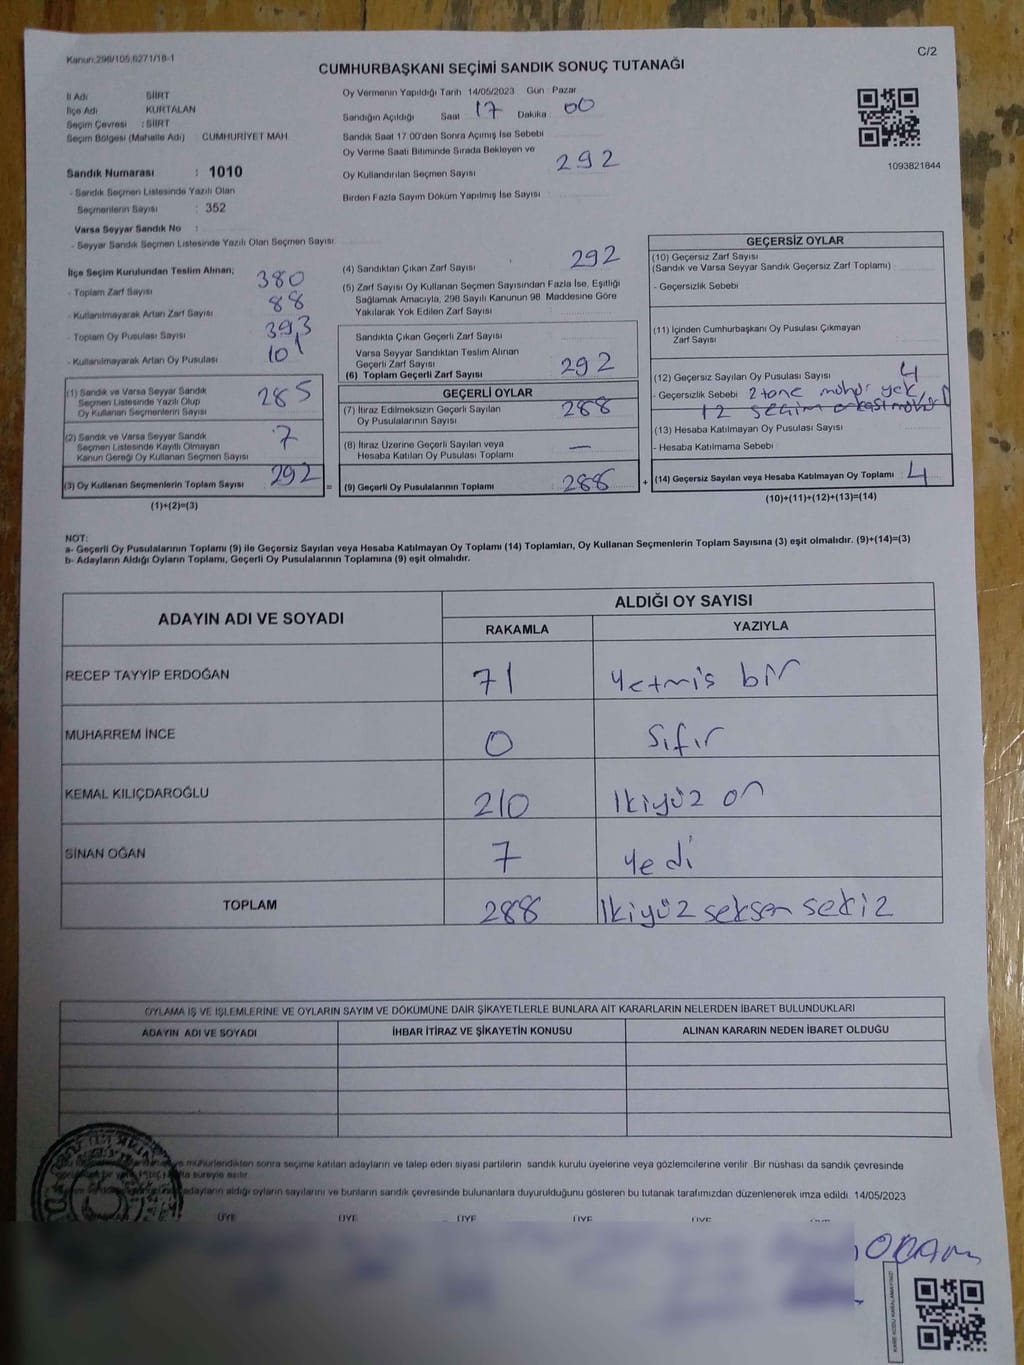 Kanun:298/105,6271/18-1
C/2
CUMHURBAŞKANI SEÇİMİ SANDIK SONUÇ TUTANAĞI
İl Adı SİİRT
İlçe Adı KURTALAN
Seçim Çevresi : SİİRT
Seçim Bölgesi (Mahalle Adı) CUMHURİYET MAH.
Sandık Numarası : 1010
- Sandık Seçmen Listesinde Yazılı Olan
Seçmenlerin Sayısı : 352
Varsa Seyyar Sandık No :
- Seyyar Sandık Seçmen Listesinde Yazılı Olan Seçmen Sayısı
Oy Vermenin Yapıldığı Tarih 14/05/2023 Gün : Pazar
Sandığın Açıldığı Saat 17 Dakika 00
Sandık Saat 17.00'den Sonra Açımış İse Sebebi
Oy Verme Saati Bitiminde Sırada Bekleyen ve
Oy Kullandırılan Seçmen Sayısı 292
Birden Fazla Sayım Döküm Yapılmış İse Sayısı
1093821844
İlçe Seçim Kurulundan Teslim Alınan;
- Toplam Zarf Sayısı 380
- Kullanılmayarak Artan Zarf Sayısı 88
- Toplam Oy Pusulası Sayısı 393
- Kullanılmayarak Artan Oy Pusulası 101
(1) Sandık ve Varsa Seyyar Sandık
Seçmen Listesinde Yazılı Olup
Oy Kullanan Seçmenlerin Sayısı 285
(2) Sandık ve Varsa Seyyar Sandık
Seçmen Listesinde Kayıtlı Olmayan
Kanun Gereği Oy Kullanan Seçmen Sayısı 7
(3) Oy Kullanan Seçmenlerin Toplam Sayısı 292 =
(1)+(2)=(3)
(4) Sandıktan Çıkan Zarf Sayısı 292
(5) Zarf Sayısı Oy Kullanan Seçmen Sayısından Fazla İse, Eşitliği
Sağlamak Amacıyla, 298 Sayılı Kanunun 98. Maddesine Göre
Yakılarak Yok Edilen Zarf Sayısı
Sandıkta Çıkan Geçerli Zarf Sayısı
Varsa Seyyar Sandıktan Teslim Alınan
Geçerli Zarf Sayısı
(6) Toplam Geçerli Zarf Sayısı 292
GEÇERLİ OYLAR
(7) İtiraz Edilmeksizin Geçerli Sayılan
Oy Pusulalarının Sayısı 288
(8) İtiraz Üzerine Geçerli Sayılan veya
Hesaba Katılan Oy Pusulası Toplamı —
(9) Geçerli Oy Pusulalarının Toplamı 288 +
GEÇERSİZ OYLAR
(10) Geçersiz Zarf Sayısı
(Sandık ve Varsa Seyyar Sandık Geçersiz Zarf Toplamı)
- Geçersizlik Sebebi
(11) İçinden Cumhurbaşkanı Oy Pusulası Çıkmayan
Zarf Sayısı
(12) Geçersiz Sayılan Oy Pusulası Sayısı 4
- Geçersizlik Sebebi 2 tane mühür yok
(13) Hesaba Katılmayan Oy Pusulası Sayısı
- Hesaba Katılmama Sebebi
(14) Geçersiz Sayılan veya Hesaba Katılmayan Oy Toplamı : 4
(10)+(11)+(12)+(13)=(14)
NOT:
a- Geçerli Oy Pusulalarının Toplamı (9) ile Geçersiz Sayılan veya Hesaba Katılmayan Oy Toplamı (14) Toplamları, Oy Kullanan Seçmenlerin Toplam Sayısına (3) eşit olmalıdır. (9)+(14)=(3)
b- Adayların Aldığı Oyların Toplamı, Geçerli Oy Pusulalarının Toplamına (9) eşit olmalıdır.
ADAYIN ADI VE SOYADI
ALDIĞI OY SAYISI
RAKAMLA YAZIYLA
RECEP TAYYİP ERDOĞAN 71 Yetmis bir
MUHARREM İNCE 0 Sıfır
KEMAL KILIÇDAROĞLU 210 İkiyüz on
SİNAN OĞAN 7 Yedi
TOPLAM 288 İkiyüz seksen sekiz
OYLAMA İŞ VE İŞLEMLERİNE VE OYLARIN SAYIM VE DÖKÜMÜNE DAİR ŞİKAYETLERLE BUNLARA AİT KARARLARIN NELERDEN İBARET BULUNDUKLARI
ADAYIN ADI VE SOYADI İHBAR İTİRAZ VE ŞİKAYETİN KONUSU ALINAN KARARIN NEDEN İBARET OLDUĞU
mühürlendikten sonra seçime katılan adayların ve talep eden siyasi partilerin sandık kurulu üyelerine veya gözlemcilerine verilir. Bir nüshası da sandık çevresinde
süreyle asılır.
adayların aldığı oyların sayılarını ve bunların sandık çevresinde bulunanlara duyurulduğunu gösteren bu tutanak tarafımızdan düzenlenerek imza edildi. 14/05/2023
ÜYE ÜYE ÜYE ÜYE ÜYE ÜYE